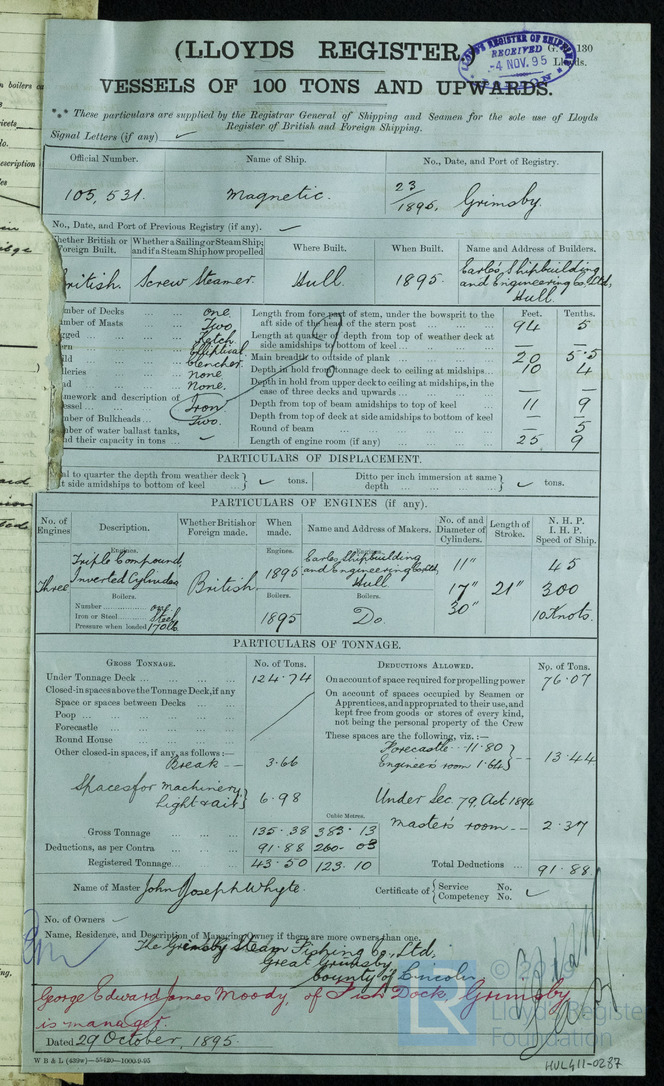 (LLOYDS REGISTER.)
G. 130
Lloyds.
LLOYD'S REGISTER OF SHIPPING
RECEIVED
-4 NOV. 95
VESSELS OF 100 TONS AND UPWARDS.
*** These particulars are supplied by the Registrar General of Shipping and Seamen for the sole use of Lloyds
Register of British and Foreign Shipping.
Signal Letters (if any)
Official Number. Name of Ship. No., Date, and Port of Registry.
105,531. Magnetic. 23/1895. Grimsby.
No., Date, and Port of Previous Registry (if any).
hether British or Foreign Built. Whether a Sailing or Steam Ship; and if a Steam Ship how propelled Where Built. When Built. Name and Address of Builders.
British. Screw Steamer. Hull. 1895. Earle's Shipbuilding and Engineering Co. Ltd, Hull.
mber of Decks one.
mber of Masts Two.
gged Ketch
ern Elliptical
ild Clencher
lleries none
ad None.
amework and description of essel Iron
mber of Bulkheads Two.
mber of water ballast tanks, nd their capacity in tons
Feet. Tenths.
Length from fore part of stem, under the bowsprit to the aft side of the head of the stern post 94 5
Length at quarter of depth from top of weather deck at side amidships to bottom of keel — —
Main breadth to outside of plank 20 5.5
Depth in hold from tonnage deck to ceiling at midships 10 4
Depth in hold from upper deck to ceiling at midships, in the case of three decks and upwards — —
Depth from top of beam amidships to top of keel 11 9
Depth from top of deck at side amidships to bottom of keel — —
Round of beam — 5
Length of engine room (if any) 25 9
PARTICULARS OF DISPLACEMENT.
al to quarter the depth from weather deck at side amidships to bottom of keel tons. Ditto per inch immersion at same depth tons.
PARTICULARS OF ENGINES (if any).
No. of Engines Description. Whether British or Foreign made. When made. Name and Address of Makers. No. and Diameter of Cylinders. Length of Stroke. N. H. P. I. H. P. Speed of Ship.
Engines. Engines. Engines.
Three Triple Compound, Inverted Cylinder British. 1895 Earles Shipbuilding and Engineering Co Ltd, Hull 11" 17" 30" 21" 45 300 10 Knots.
Boilers. Boilers. Boilers.
Number one
Iron or Steel Steel
Pressure when loaded 170 lb
1895 Do.
PARTICULARS OF TONNAGE.
GROSS TONNAGE. No. of Tons.
Under Tonnage Deck 124.74
Closed-in spaces above the Tonnage Deck, if any
Space or spaces between Decks
Poop
Forecastle
Round House
Other closed-in spaces, if any, as follows:—
Break — 3.66
Spaces for machinery, Light & air 6.98
Cubic Metres.
Gross Tonnage 135.38 383.13
Deductions, as per Contra 91.88 260.03
Registered Tonnage 43.50 123.10
DEDUCTIONS ALLOWED. No. of Tons.
On account of space required for propelling power 76.07
On account of spaces occupied by Seamen or Apprentices, and appropriated to their use, and kept free from goods or stores of every kind, not being the personal property of the Crew
These spaces are the following, viz.:—
Forecastle - 11.80
Engineer's room 1.64 13.44
Under Sec. 79, Act 1894
Master's room 2.37
Total Deductions 91.88
Name of Master John Joseph Whyte. Certificate of Service No. Competency No.
No. of Owners
Name, Residence, and Description of Managing Owner if there are more owners than one.
The Grimsby Steam Fishing Co., Ltd.
Great Grimsby
County of Lincoln
George Edward James Moody, of Fish Dock, Grimsby
is manager.
Dated 29 October, 1895.
W B & L (439w)—55420—1000-9-95
LR
Lloyd's Register
Foundation
HUL411-0287